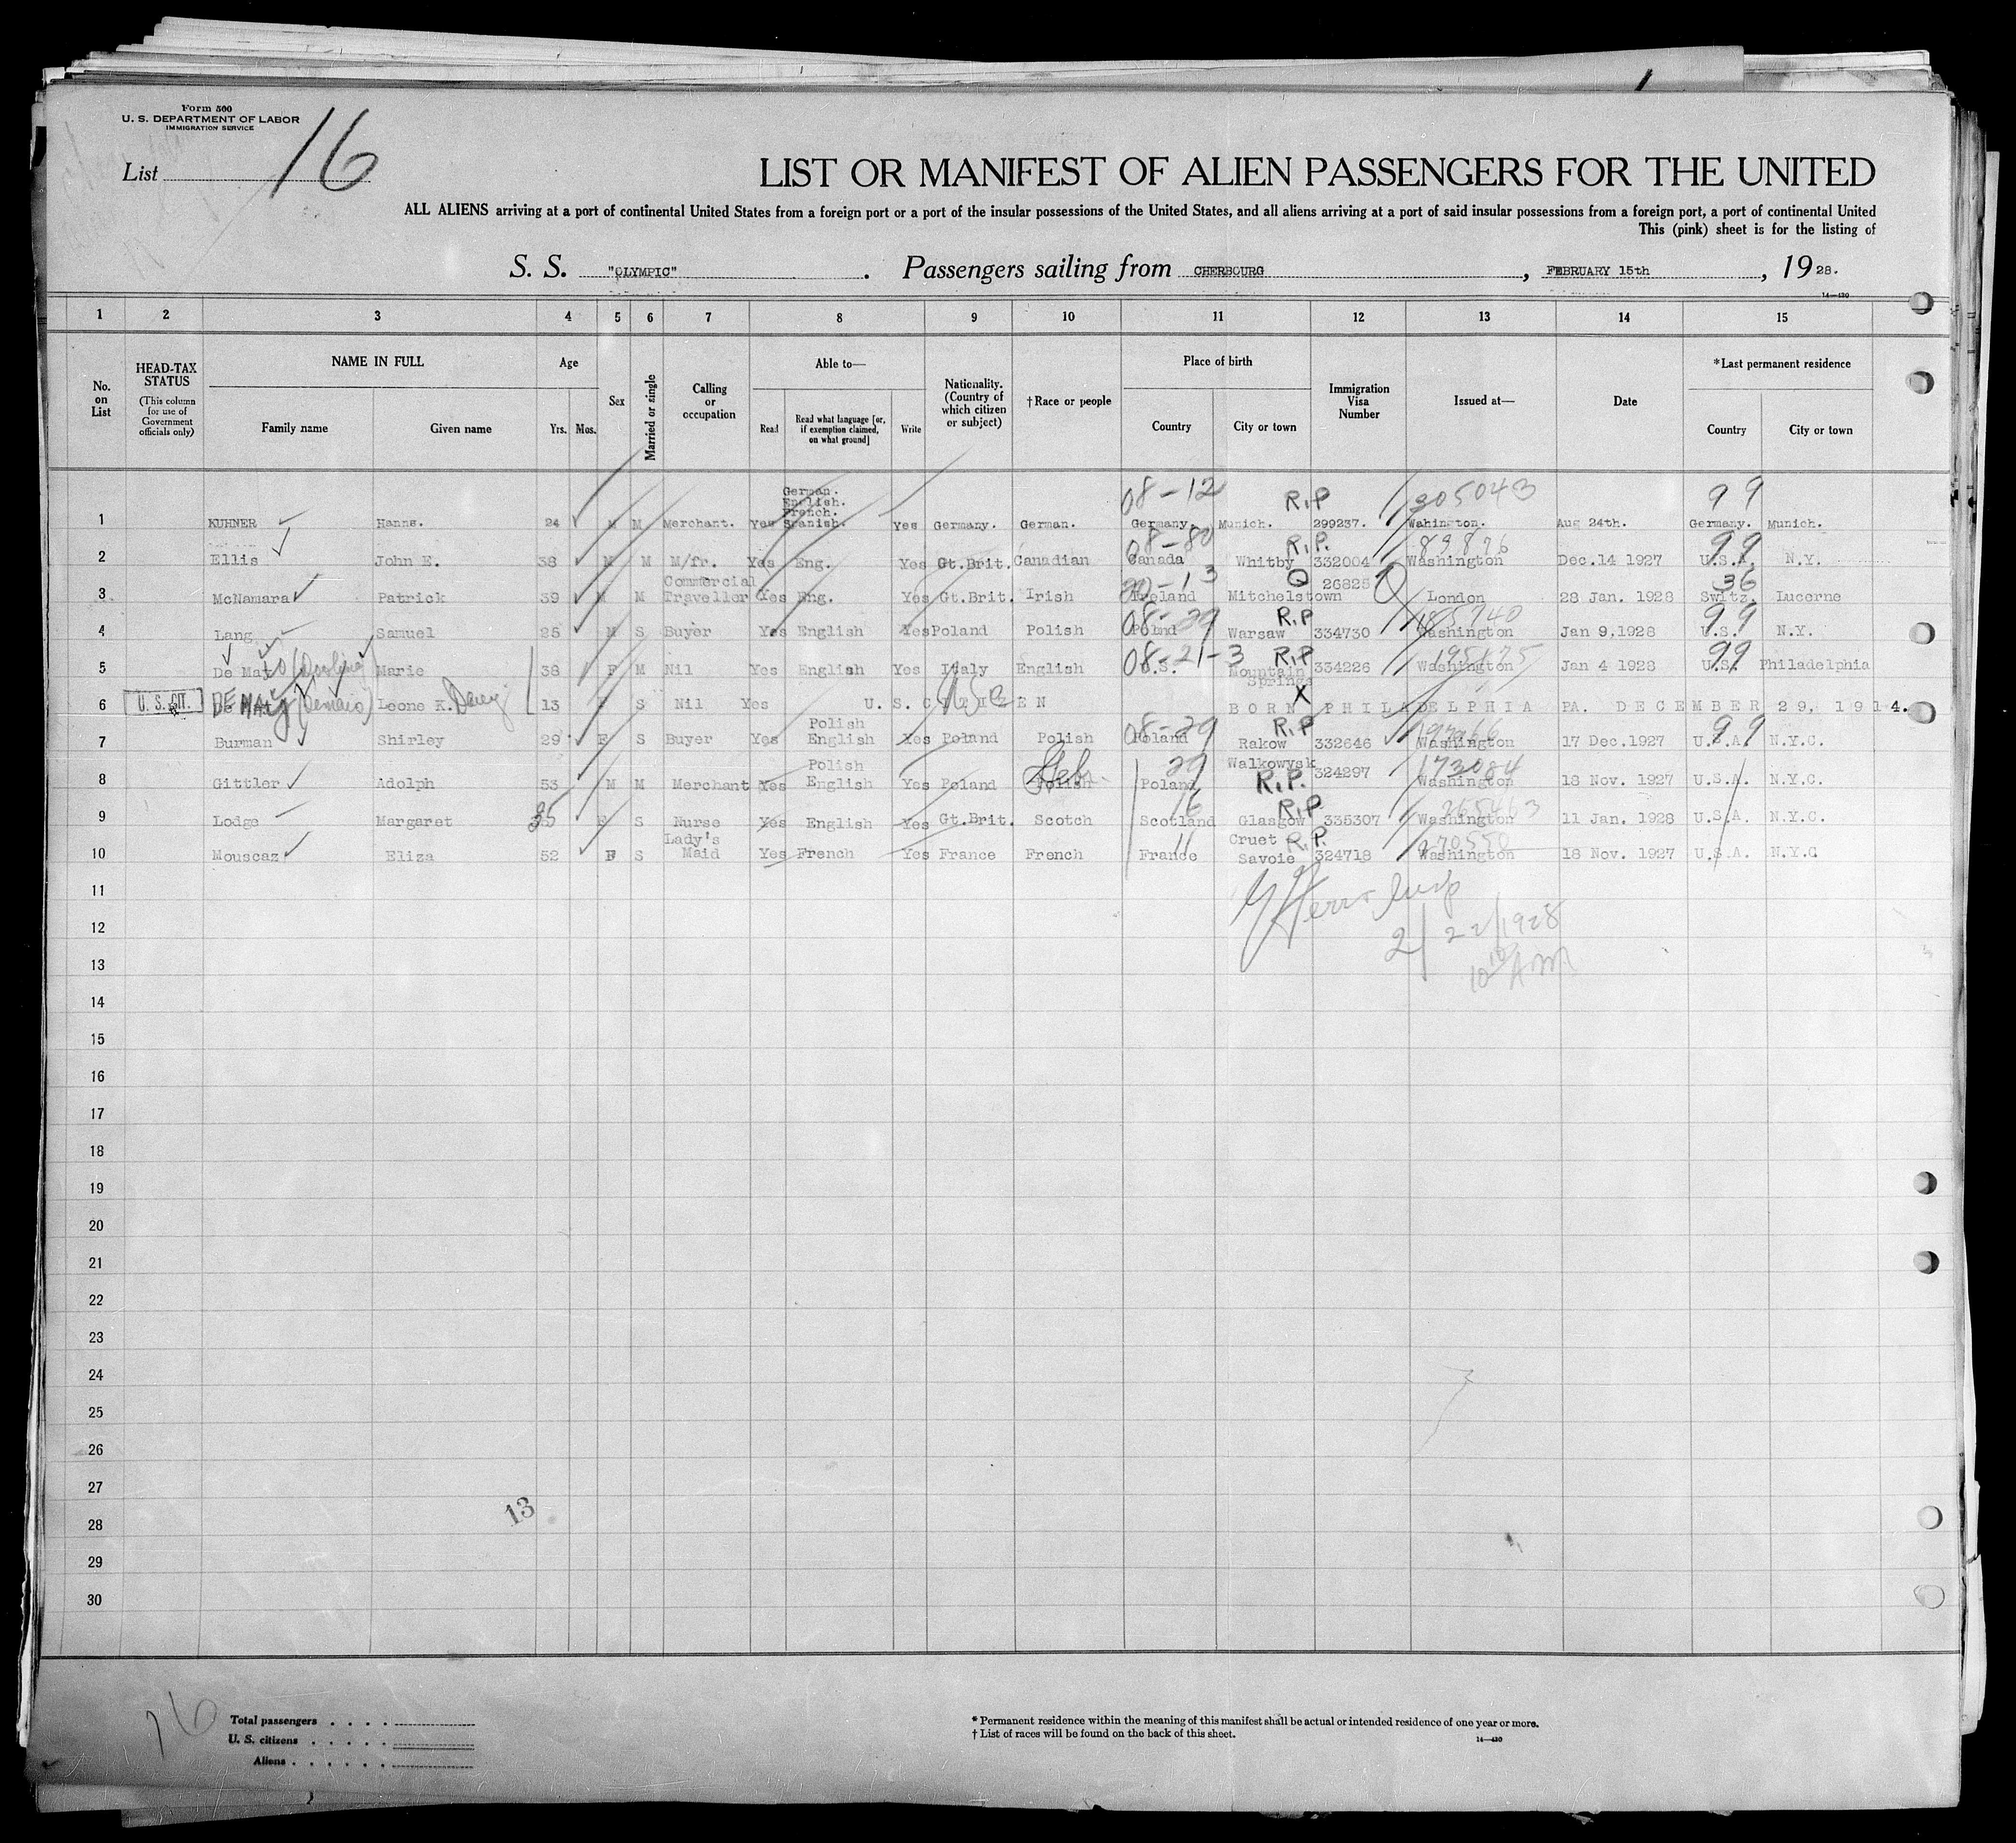 Form 500
U. S. DEPARTMENT OF LABOR
IMMIGRATION SERVICE
List 16
LIST OR MANIFEST OF ALIEN PASSENGERS FOR THE UNITED
ALL ALIENS arriving at a port of continental United States from a foreign port or a port of the insular possessions of the United States, and all aliens arriving at a port of said insular possessions from a foreign port, a port of continental United
This (pink) sheet is for the listing of
S. S. "OLYMPIC". Passengers sailing from CHERBOURG, FEBRUARY 15th, 1928.
14—430
1 2 3 4 5 6 7 8 9 10 11 12 13 14 15
No. on List
HEAD-TAX STATUS
(This column for use of Government officials only)
NAME IN FULL
Family name
Given name
Age
Yrs. Mos.
Sex
Married or single
Calling or occupation
Able to—
Read
Read what language [or, if exemption claimed, on what ground]
Write
Nationality. (Country of which citizen or subject)
†Race or people
Place of birth
Country
City or town
Immigration Visa Number
Issued at—
Date
*Last permanent residence
Country
City or town
08-12 R.P 305043 99
1 KUHNER Hanns. 24 M M Merchant. Yes German. English. French. Spanish. Yes Germany. German. Germany. Munich. 299237. Wahington. Aug 24th. Germany. Munich.
08-80 R.P. 89876 99
2 Ellis John E. 38 M M M/fr. Yes Eng. Yes Gt.Brit. Canadian Canada Whitby 332004 Washington Dec.14 1927 U.S.A. N.Y.
13 Q 36
3 McNamara Patrick 39 M M Commercial Travellor Yes Eng. Yes Gt.Brit. Irish Ireland Mitchelstown 26825 London 28 Jan. 1928 Switz. Lucerne
08-29 R.P 185740 99
4 Lang Samuel 25 M S Buyer Yes English Yes Poland Polish Polnd Warsaw 334730 Washington Jan 9,1928 U.S. N.Y.
08-21-3 R.P 195175 99
5 De Mato Marie 38 F M Nil Yes English Yes Italy English U.S. Mountain Springs 334226 Washington Jan 4 1928 U.S. Philadelphia
6 U. S. CIT. DE MAY (Demaio) Leone K. 13 F S Nil Yes U.S.CITIZEN USC X BORN PHILADELPHIA PA. DECEMBER 29, 1914.
08-29 R.P 99
7 Burman Shirley 29 F S Buyer Yes Polish English Yes Poland Polish Poland Rakow 332646 Washington 17 Dec.1927 U.S.A. N.Y.C.
8 Gittler Adolph 53 M M Merchant Yes Polish English Yes Poland Polish Heb. Poland 29 Walkowysk R.P. 324297 173084 Washington 18 Nov. 1927 U.S.A. N.Y.C.
9 Lodge Margaret 35 F S Nurse Yes English Yes Gt.Brit. Scotch Scotland 16 Glasgow R.P 335307 265463 Washington 11 Jan. 1928 U.S.A. N.Y.C.
10 Mouscaz Eliza 52 F S Lady's Maid Yes French Yes France French France 11 Cruet Savoie R.P. 324718 270550 Washington 18 Nov. 1927 U.S.A. N.Y.C
11
12 2/22/1928
13 AM
14
15
16
17
18
19
20
21
22
23
24
25
26
27
13
28
29
30
16
Total passengers . . . .
U. S. citizens . . . . .
Aliens . . . . . .
* Permanent residence within the meaning of this manifest shall be actual or intended residence of one year or more.
† List of races will be found on the back of this sheet.
14—430